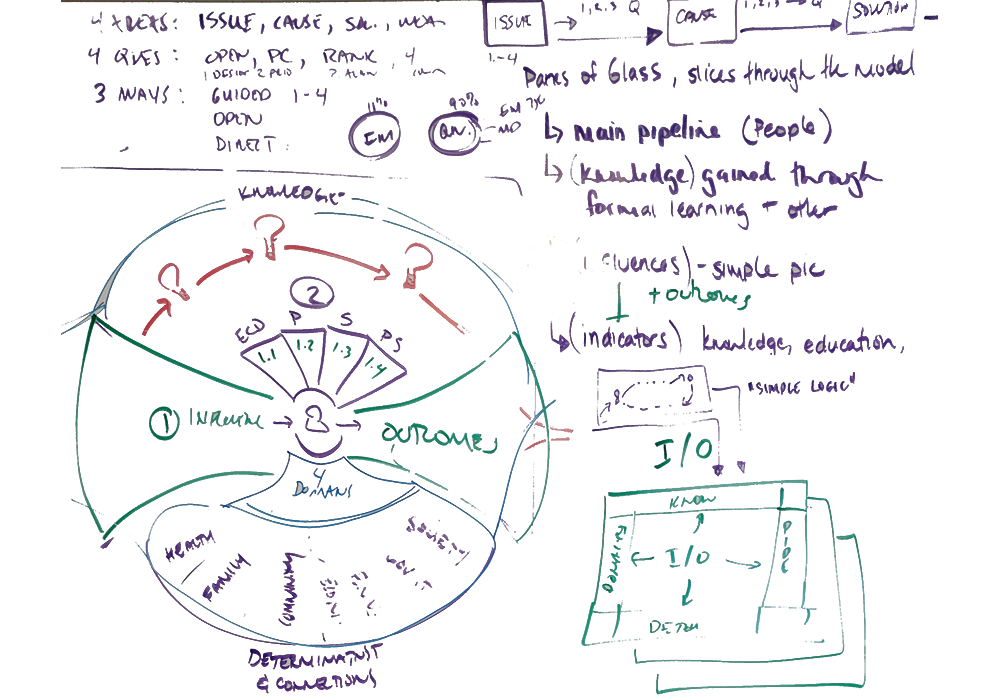 4 AREAS: ISSUE, CAUSE, SOL.,
4 QIVES: OPEN, PC, RANK, 4
3 WAYS: GUIDED 1-4
OPEN
DIRECT:
11%
EM
90%
QN.
EM
MD
ISSUE
1,2,3 Q
CAUSE
1,2,3 → Q
SOLUTION
1.-4
Panes of Glass, slices through the model
↳ main pipeline (People)
↳ (knowledge) gained through
formal learning + other
fluences) - simple pic
+ outcomes
↳ (indicators) knowledge, education,
"SIMPLE LOGIC"
I/O
KNOWLEDGE
2
ECD P S PS
1.1 1.2 1.3 1.4
1 INFLUENCE → → OUTCOMES
4
DOMAINS
HEALTH
FAMILY
COMMUNITY
GOV'T
SOCIETY
DETERMINATNST
& CONNECTIONS
KNOW
DOMAINS
I/O
PIPE
DETER